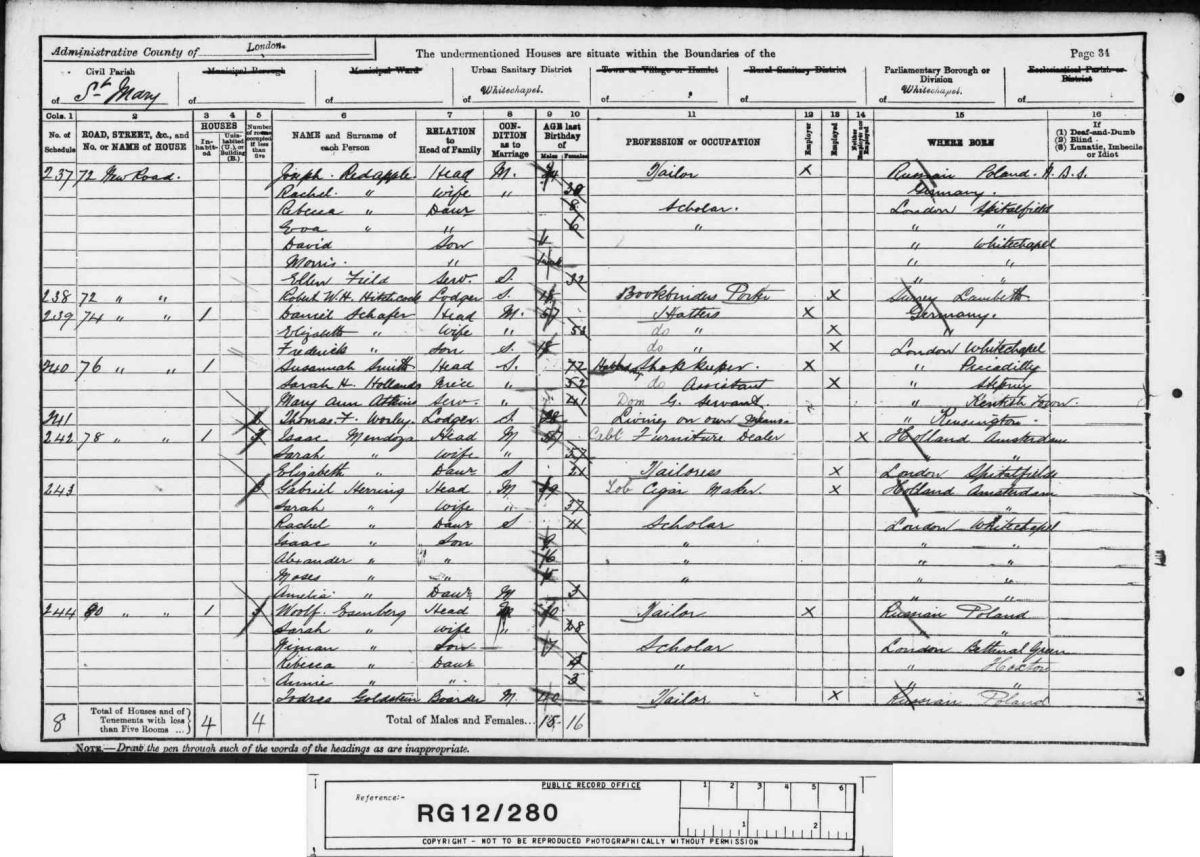 Administrative County of London. The undermentioned Houses are situate within the Boundaries of the Page 34
Civil Parish Municipal Borough Municipal Ward Urban Sanitary District Town or Village or Hamlet Rural Sanitary District Parliamentary Borough or Division Ecclesiastical Parish or District
of St Mary of of of Whitechapel. of of of Whitechapel. of
Cols. 1 2 3 4 5 6 7 8 9 10 11 12 13 14 15 16
No. of Schedule ROAD, STREET, &c., and No. or NAME of HOUSE HOUSES Inhabited Uninhabited (U.), or Building (B.) Number of rooms occupied if less than five NAME and Surname of each Person RELATION to Head of Family CONDITION as to Marriage AGE last Birthday of Males Females PROFESSION or OCCUPATION Employer Employed Neither Employer nor Employed WHERE BORN If (1) Deaf-and-Dumb (2) Blind (3) Lunatic, Imbecile or Idiot
237 72 New Road. Joseph Redapple Head M. Tailor X Russian Poland. N. B. S.
Rachel " Wife " 30 Germany.
Rebecca " Daur 8 Scholar. London Spitalfield
Eva " " 6 " " "
David Son 4 " Whitechapel
Morris. " " "
Ellen Field Serv. S. 32 " "
238 72 " " Robert W. H. Hitchcock Lodger S. Bookbinders Porter X Surrey Lambeth
239 74 " " 1 Daniel Schafer Head M. 57 Hatters X Germany.
Elizabeth " Wife " 53 do " X "
Frederick " Son S. 18 do " X London Whitechapel
240 76 " " 1 Susannah Smith Head S. 72 Shopkeeper. X " Piccadilly
Sarah H. Hollands Niece " 52 do Assistant X " Stepney
Mary Ann Atkins Serv. " 41 Dom G. Servant " Kentish Town.
241 Thomas F. Worley. Lodger S Living on own means " Kensington.
242 78 " " 1 Isaac Mendoza Head M Cabt Furniture Dealer X Holland Amsterdam
Sarah " Wife " 57 "
Elizabeth " Daur S 21 Tailoress X London Spitalfields
243 Gabriel Herring Head M 39 Tob Cigar Maker. X Holland Amsterdam
Sarah " Wife " 37 "
Rachel " Daur S 11 Scholar London Whitechapel
Isaac " Son 9 " " "
Alexander " " " " "
Moses " " 5 " " "
Amelia " Daur 3 " "
244 80 " " 1 Woolf Esenberg Head M 30 Tailor X Russian Poland
Sarah " Wife " 28 "
Himan " Son 7 Scholar London Bethnal Green
Rebecca " Daur 5 " " Hoxton
Annie " " 3 " "
Todres Goldstein Boarder M. 40 Tailor X Russian Poland
8 Total of Houses and of Tenements with less than Five Rooms ... 4 4 Total of Males and Females... 15 16
NOTE.—Draw the pen through such of the words of the headings as are inappropriate.
PUBLIC RECORD OFFICE
1 2 3 4 5 6
Reference:-
RG12/280
1 2
COPYRIGHT - NOT TO BE REPRODUCED PHOTOGRAPHICALLY WITHOUT PERMISSION